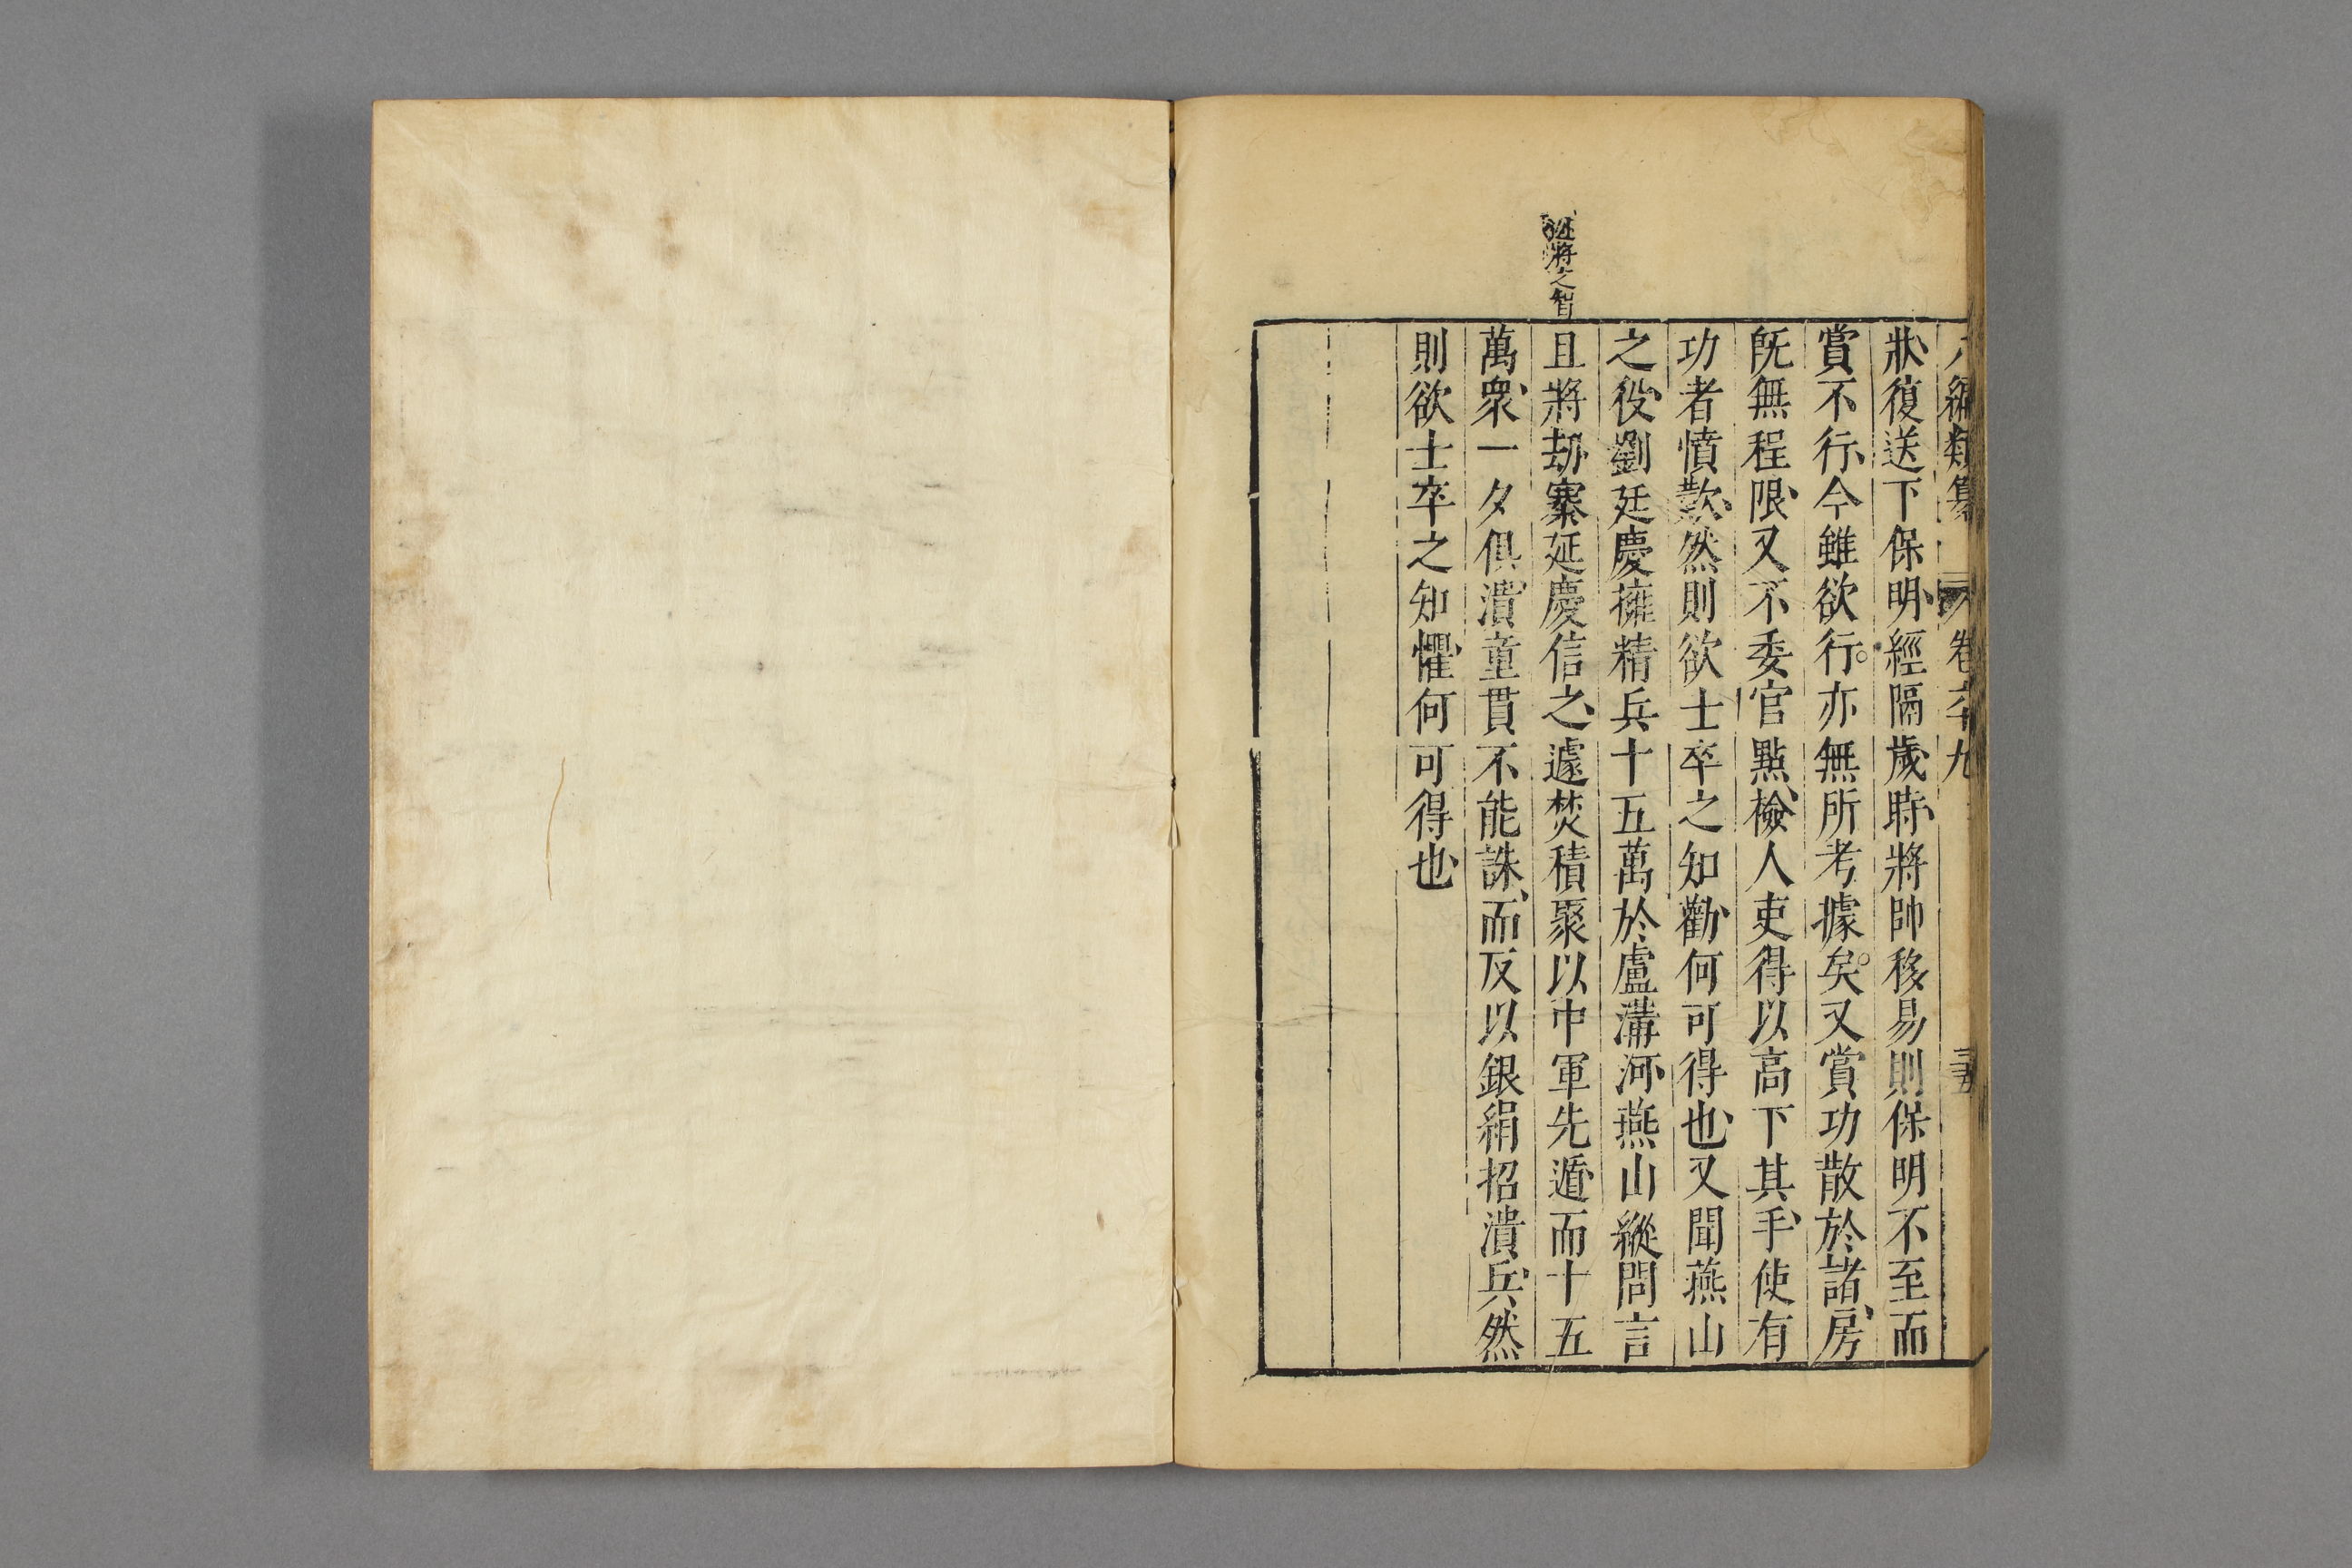 八編類纂　卷六十九　三五
狀復送下保明經隔歲時將帥移易則保明不至而
賞不行今雖欲行亦無所考據矣又賞功散於諸房
旣無程限又不委官點檢人吏得以高下其手使有
功者憤歎然則欲士卒之知勸何可得也又聞燕山
之役劉延慶擁精兵十五萬於盧溝河燕山縱間言
且將劫寨延慶信之遽焚積聚以中軍先遁而十五
萬衆一夕俱潰童貫不能誅而反以銀絹招潰兵然
則欲士卒之知懼何可得也
將之智